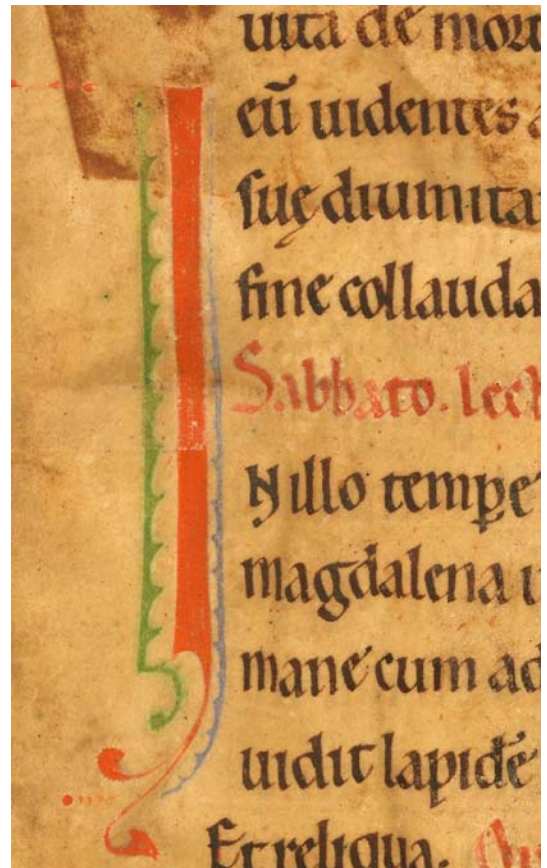 uita de mort
eū uidentes a
suę diuinita
fine collauda
Sabbato. lect
IN illo tempꝑe
magdalena u
mane cum ad
uidit lapidē
Et reliqua.